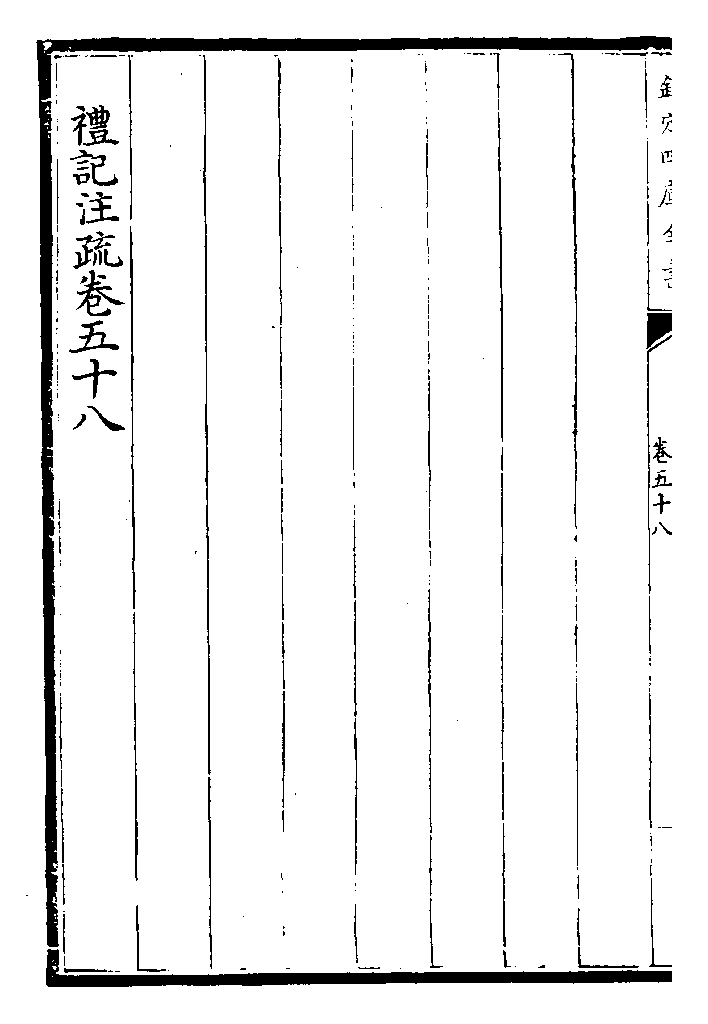 欽定四庫全書
卷五十八
禮記注疏卷五十八